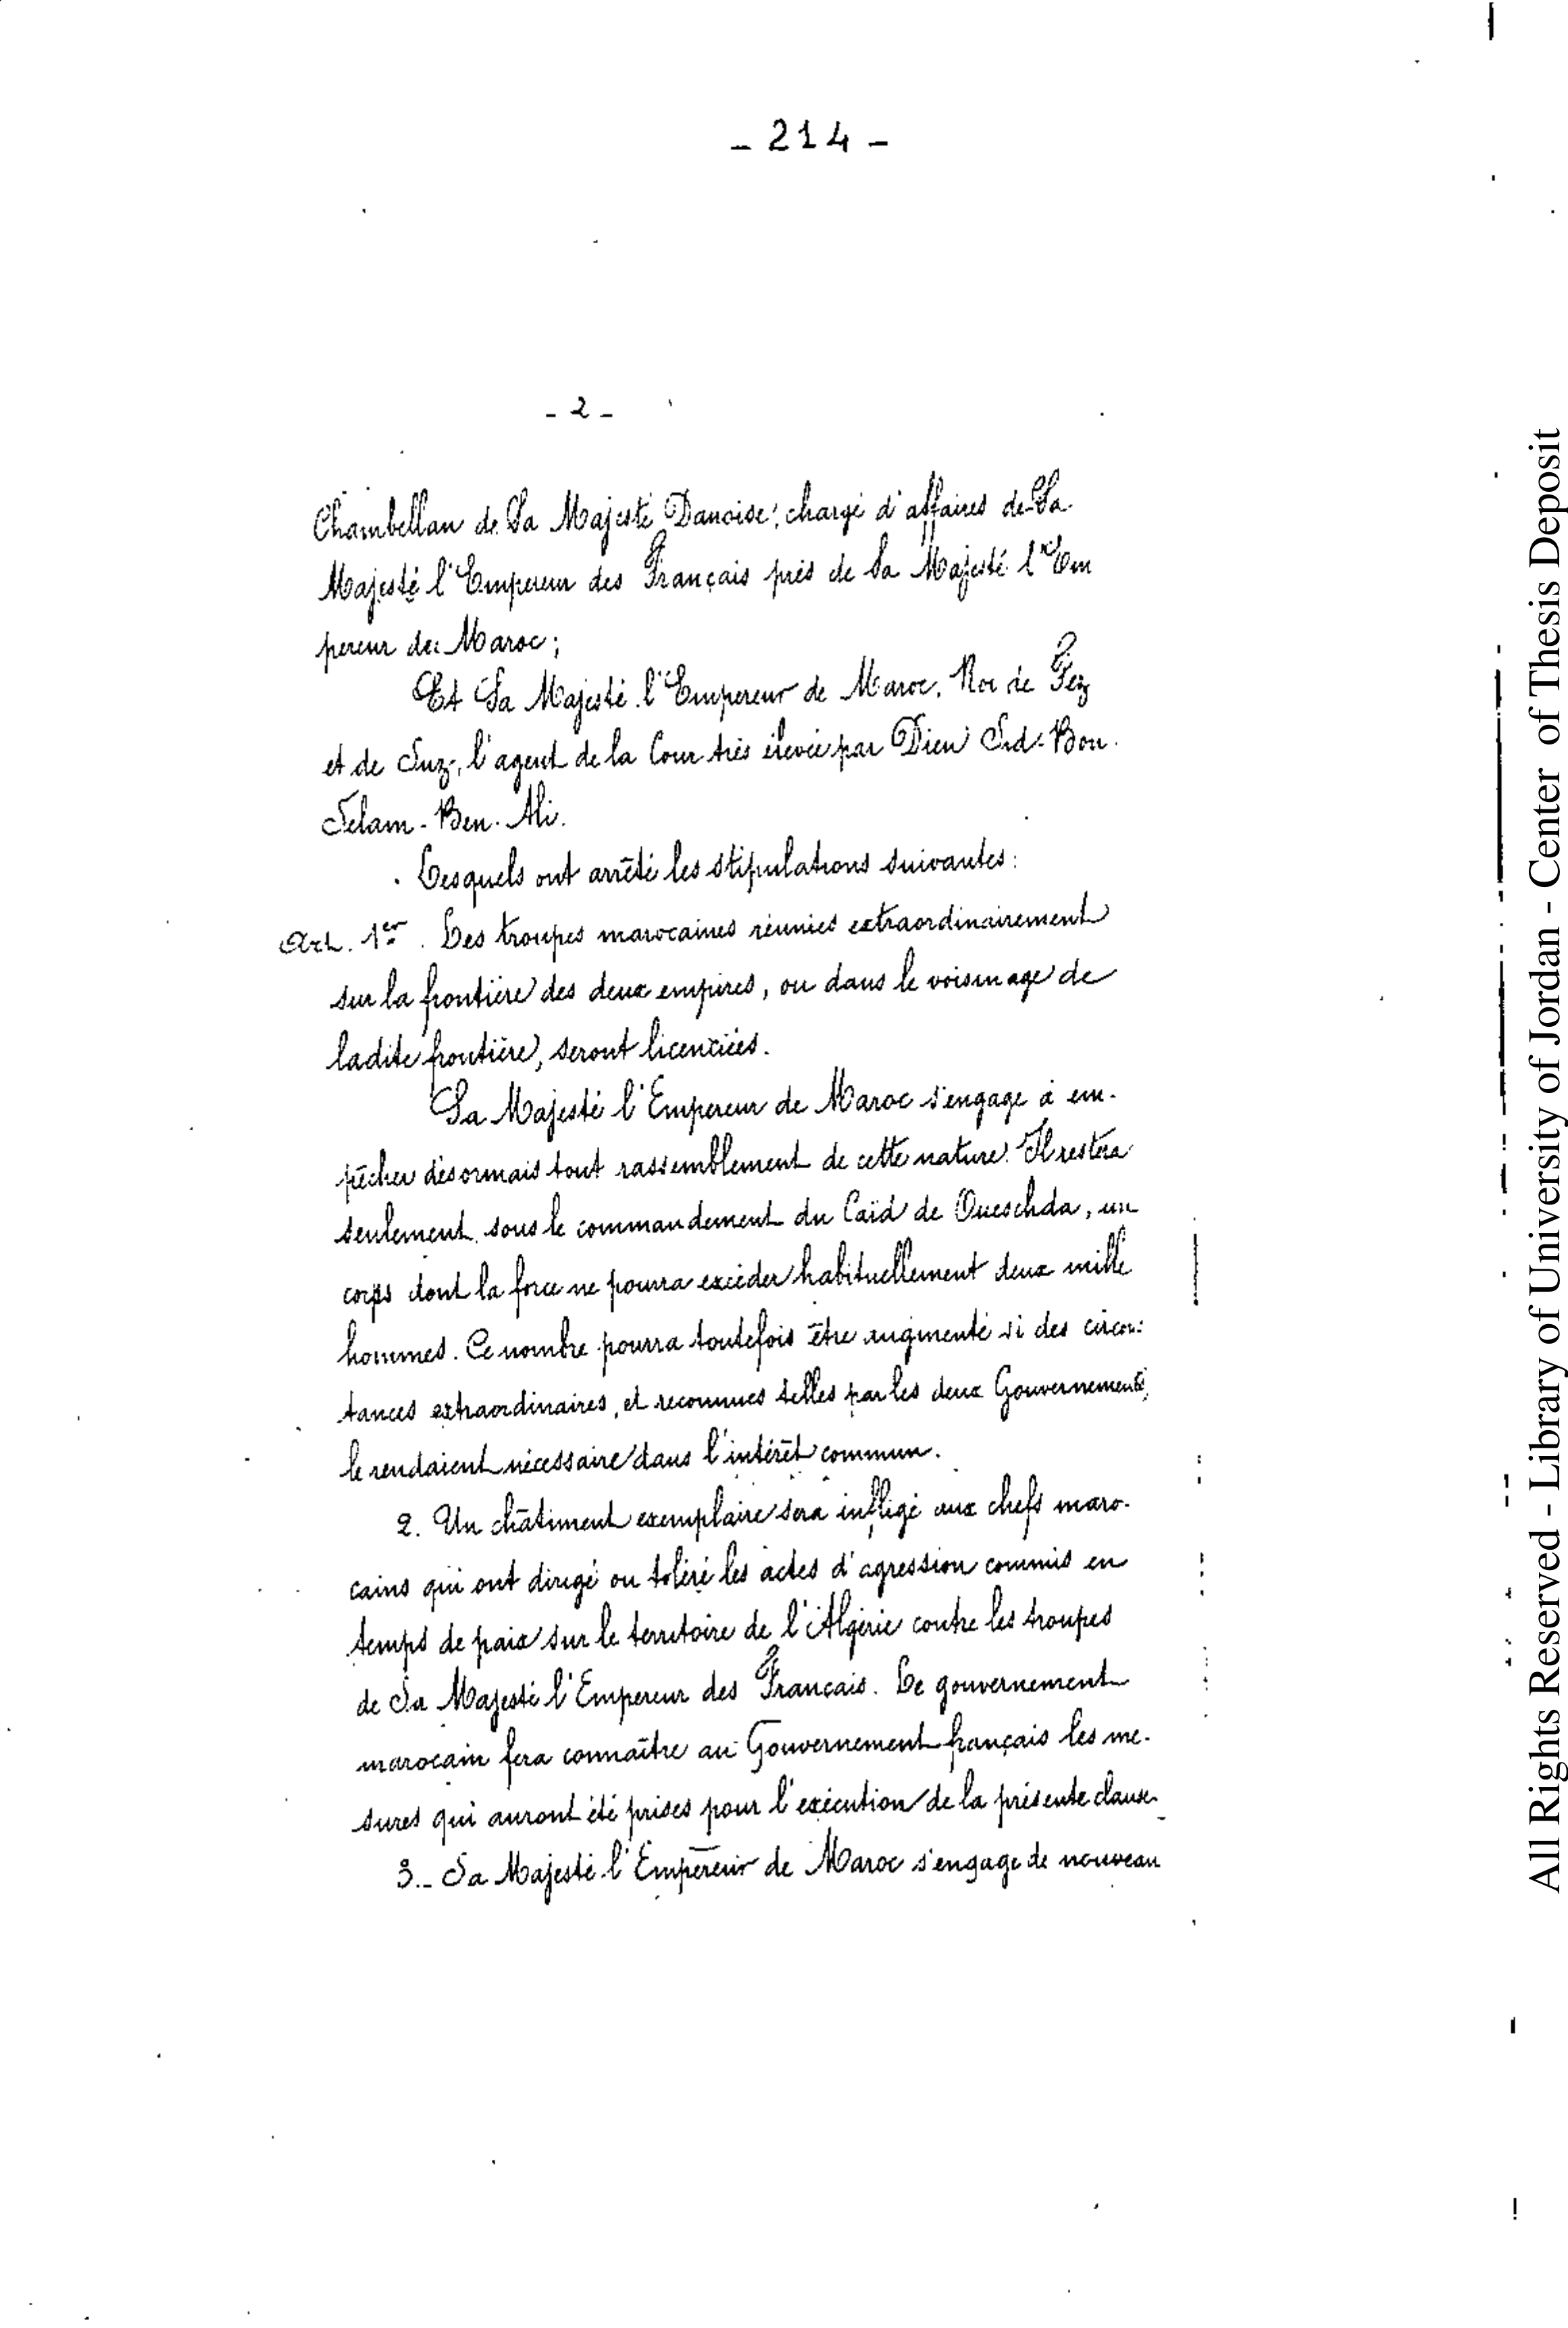 - 214 -
- 2 -
Chambellan de Sa Majesté Danoise, chargé d'affaires de Sa
Majesté l'Empereur des Français près de Sa Majesté l'Em
pereur de Maroc ;
Et Sa Majesté l'Empereur de Maroc, Roi de Fez
et de Suz, l'agent de la Cour très élevée par Dieu Sid-Bou-
Selam-Ben-Ali.
Lesquels ont arrêté les stipulations suivantes :
Art. 1er. Les troupes marocaines réunies extraordinairement
sur la frontière des deux empires, ou dans le voisinage de
ladite frontière, seront licenciées.
Sa Majesté l'Empereur de Maroc s'engage à em-
pêcher désormais tout rassemblement de cette nature. Il restera
seulement, sous le commandement du Caïd de Oueschda, un
corps dont la force ne pourra excéder habituellement deux mille
hommes. Ce nombre pourra toutefois être augmenté si des circons-
tances extraordinaires, et reconnues telles par les deux Gouvernements,
le rendaient nécessaire dans l'intérêt commun.
2. Un châtiment exemplaire sera infligé aux chefs maro-
cains qui ont dirigé ou toléré les actes d'agression commis en
temps de paix sur le territoire de l'Algérie contre les troupes
de Sa Majesté l'Empereur des Français. Le gouvernement
marocain fera connaître au Gouvernement français les me-
sures qui auront été prises pour l'exécution de la présente clause.
3.- Sa Majesté l'Empereur de Maroc s'engage de nouveau
All Rights Reserved - Library of University of Jordan - Center of Thesis Deposit